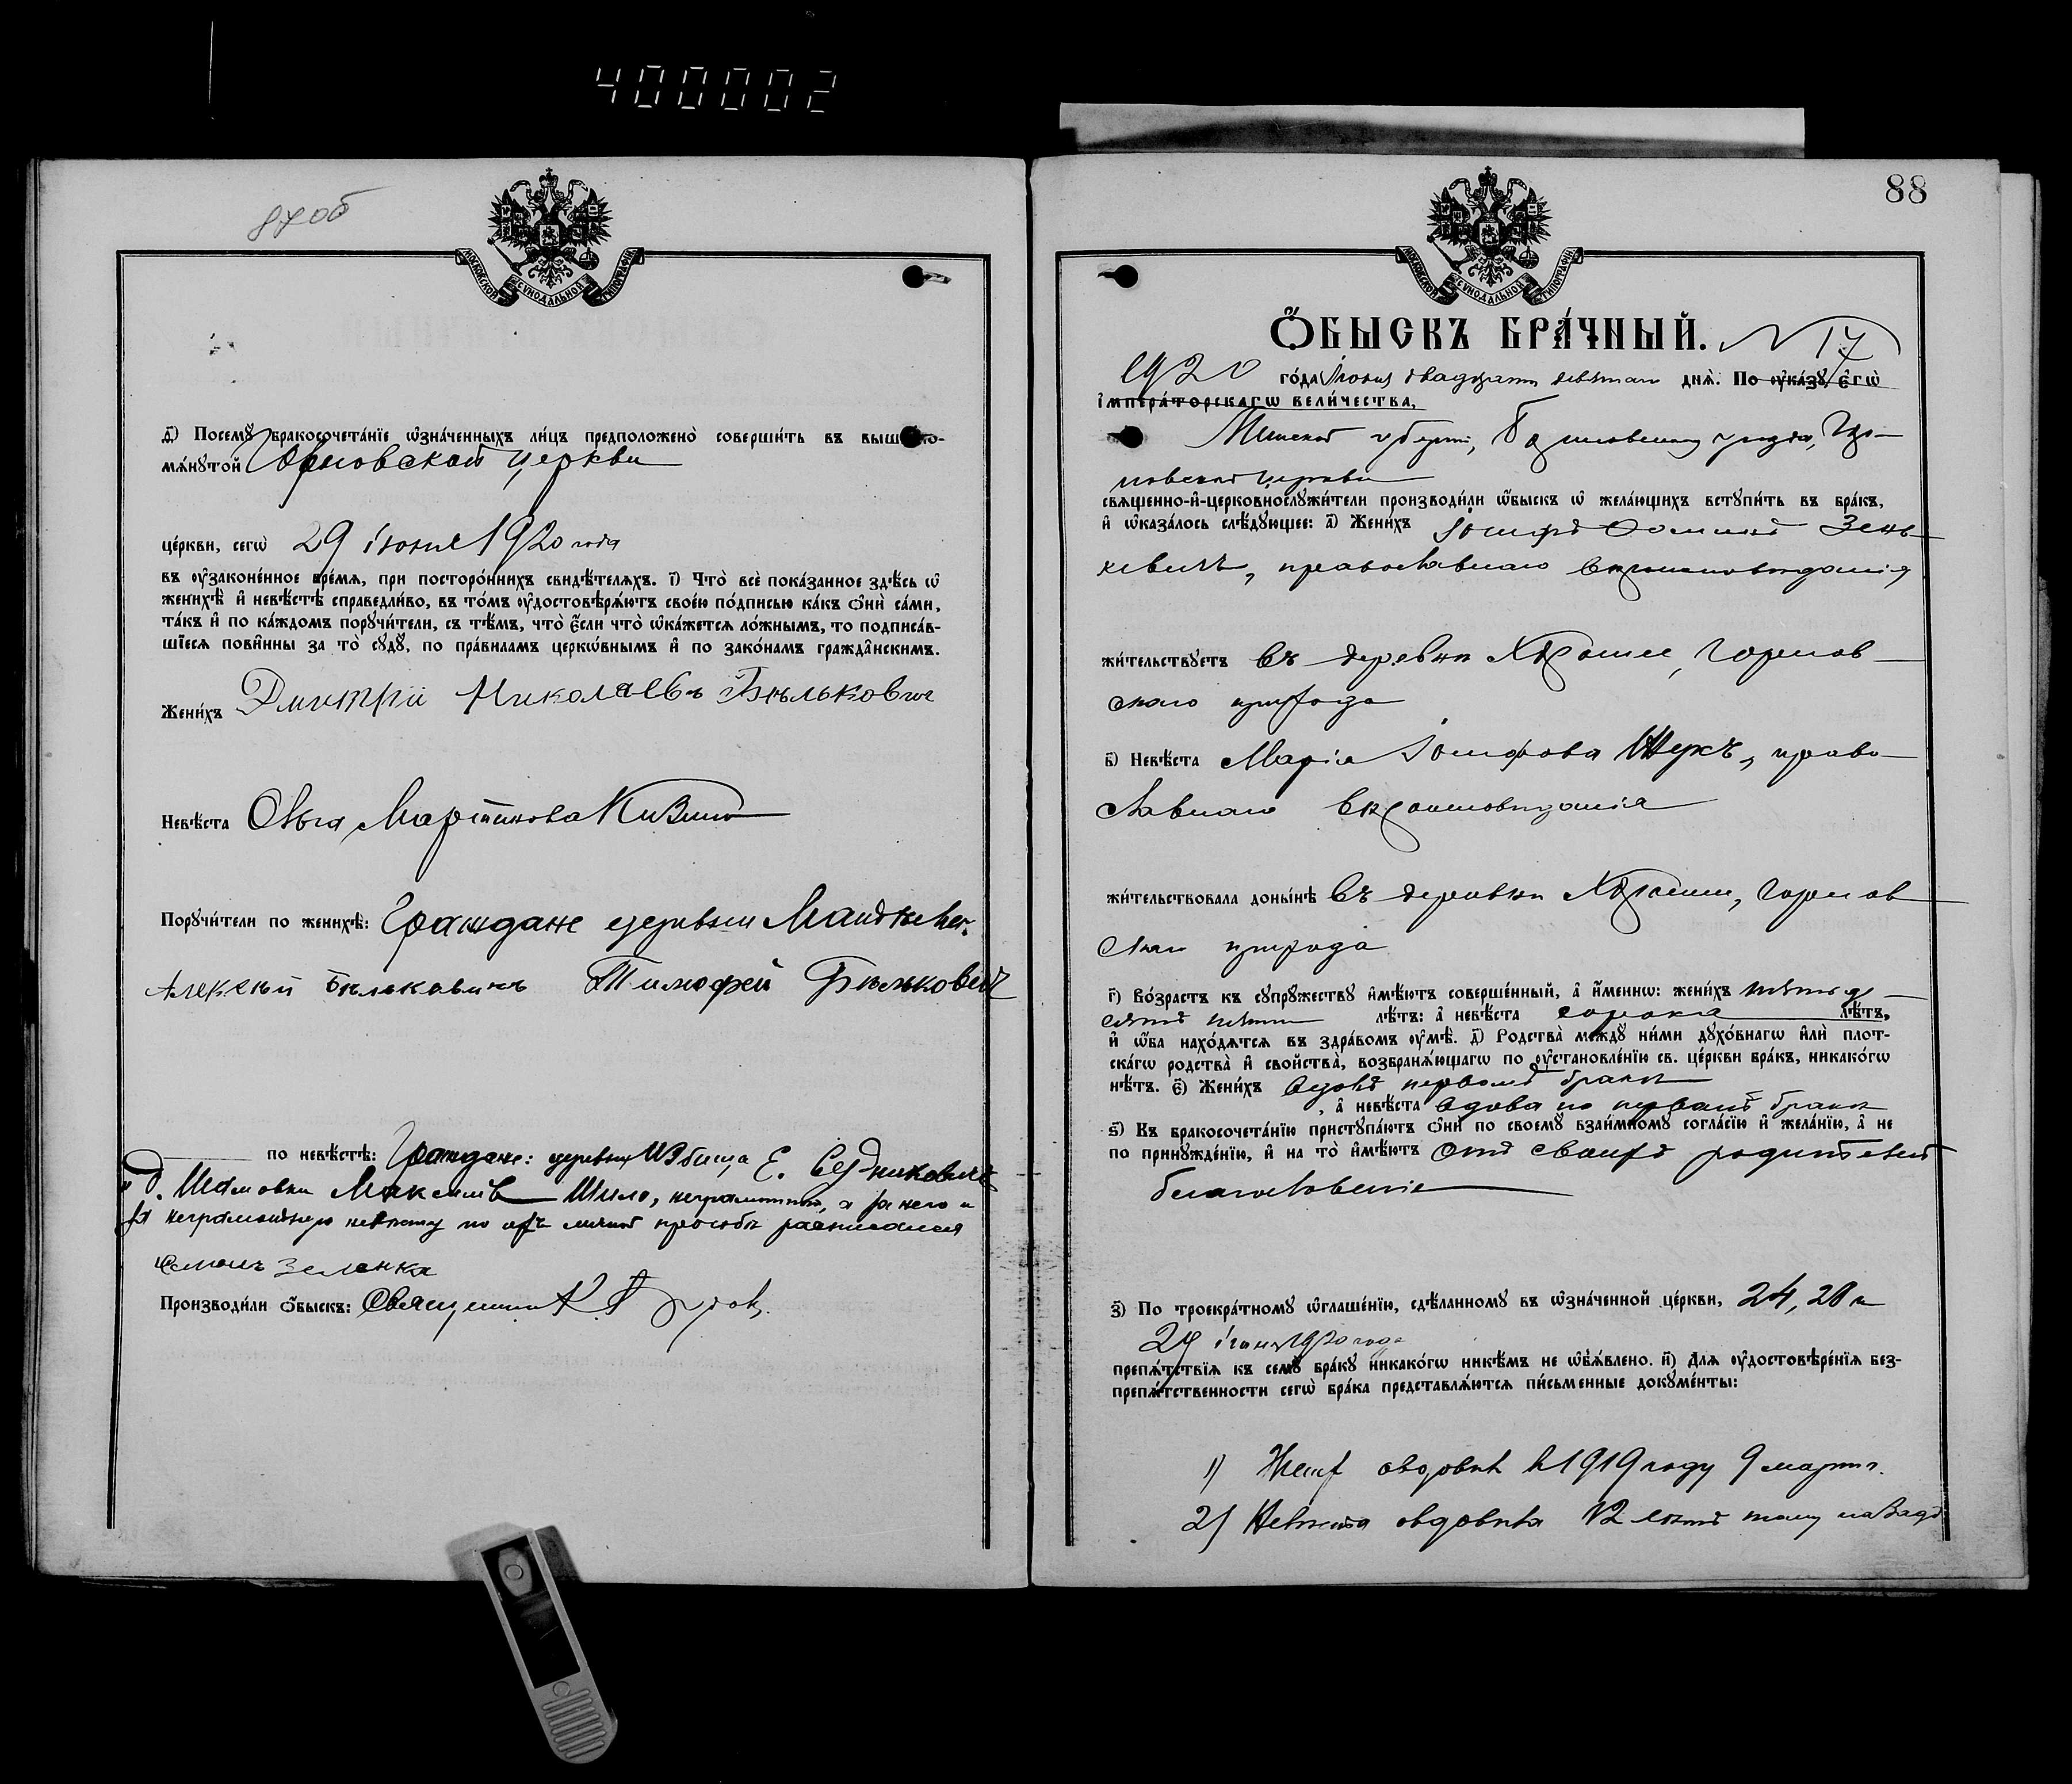 400002
87об
МОСКОВСКОЙ СѴНОДАЛЬНОЙ ТИПОГРАФІИ
д҃) Посемꙋ̀ бракосочета́нїе ѡ҆зна́ченныхъ ли́цъ предположено̀ соверши́ть въ выше
мѧ́нутой Горновской церкви
це́ркви, сегѡ̀ 29 іюня 1920 года
въ ᲂу҆законе́нное вре́мѧ, при посторо́ннихъ свидѣ́телѧхъ. і҃) Что̀ всѐ пока́занное здѣ́сь ѡ҆
женихѣ̀ и҆ невѣ́стѣ справедли́во, въ то́мъ ᲂу҆достовѣрѧ́ютъ свое́ю по́дписью ка́къ ѻ҆нѝ са́ми,
та́къ и҆ по ка́ждомъ порꙋчи́тели, съ тѣ́мъ, что̀ є҆́сли что̀ ѡ҆ка́жетсѧ ло́жнымъ, то подписа́в-
шїесѧ пови́нны за то̀ сꙋдꙋ̀, по пра́виламъ церкѡ́внымъ и҆ по зако́намъ гражда́нскимъ.
Жени́хъ Дмитрій Николаевъ Бѣльковичъ
Невѣ́ста Ольга Мартинова
Порꙋчи́тели по женихѣ̀: Граждане деревни
Алексѣй Бѣльковичъ Тимофей Бѣльковичъ
по невѣ́стѣ: Граждане: деревни Избища Е. Бедниковичъ
и д. Шамовки Максимъ Шило, неграмотный, а за него и
за неграмотную невѣсту по ихъ личной просьбѣ расписался
Семонъ Зеленка
Производи́ли ѻ҆́быскъ: Священникъ К.
88
МОСКОВСКОЙ СѴНОДАЛЬНОЙ ТИПОГРАФІИ
Ѻ҆́БЫСКЪ БРА́ЧНЫЙ. N 17
1920 го́да Іюня двадцать девятаго днѧ̀. По ᲂу҆ка́зꙋ є҆гѡ̀
і҆мпера́торскагѡ вели́чества,
Минской губерніи, Борисовскаго уѣзда, Гор-
новской церкви
свѧще́нно-и҆-церковнослꙋжи́тели производи́ли ѻ҆́быскъ ѡ҆ жела́ющихъ встꙋпи́ть въ бра́къ,
и҆ ѡ҆каза́лось слѣ́дꙋющее: а҃) Жени́хъ Іосифъ Зень-
кевичъ, православнаго вѣроисповѣданія
жи́тельствꙋетъ въ деревнѣ Горнов-
скаго прихода
в҃) Невѣ́ста Марія Іосифова Жукъ, право-
славнаго вѣроисповѣданія
жи́тельствовала доны́нѣ въ деревнѣ Горнов
скаго прихода
г҃) Во́зрастъ къ сꙋпрꙋ́жествꙋ и҆мѣ́ютъ соверше́нный, а҆ и҆́меннѡ: жени́хъ пятьде-
сятъ пяти лѣ́тъ: а҆ невѣ́ста сорока лѣ́тъ,
и҆ ѻ҆́ба нахо́дѧтсѧ въ здра́вомъ ᲂу҆мѣ̀. д҃) Родства̀ междꙋ̀ ни́ми дꙋхо́внагѡ и҆лѝ плот-
ска́гѡ родства̀ и҆ сво́йства̀, возбранѧ́ющагѡ по ᲂу҆становле́нїю св. це́ркви бра́къ, никако́гѡ
нѣ́тъ. є҃) Жени́хъ вдовъ первомъ бракѣ
, а҆ невѣ́ста вдова по первомъ бракѣ
ѕ҃) Къ бракосочета́нїю пристꙋпа́ютъ ѻ҆нѝ по своемꙋ̀ взаи́мномꙋ согла́сїю и҆ жела́нїю, а҆ не
по принꙋжде́нїю, и҆ на то̀ и҆мѣ́ютъ отъ своихъ родителей
благословеніе
з҃) По троекра́тномꙋ ѡ҆глаше́нїю, сдѣ́ланномꙋ въ ѡ҆зна́ченной це́ркви, 24, 28 и
29 іюня 1920 года
препѧ́тствїѧ къ семꙋ̀ бра́кꙋ никако́гѡ никѣ́мъ не ѡ҆б̾ѧ́влено. и҃) Длѧ ᲂу҆достовѣре́нїѧ без-
препѧ́тственности сегѡ̀ бра́ка представлѧ́ютсѧ пи́сьменные докꙋме́нты:
1) Жених овдовѣлъ в 1919 году 9 марта.
2) Невѣста овдовѣла 12 лѣтъ тому назадъ